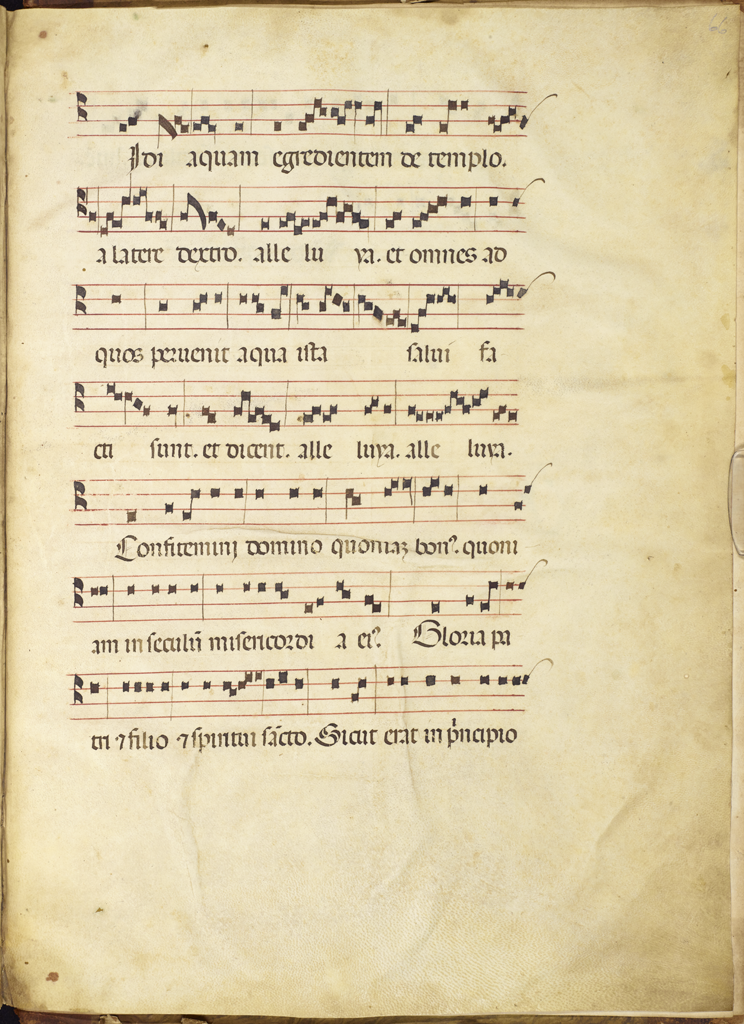 Idi aquam egredientem de templo.
a latere dextro. alle lu ya. et omnes ad
quos peruenit aqua ista salui fa
cti sunt. et dicent. alle luya. alle luya.
Confitemini domino quoniaʒ bonꝰ. quoni
am in seculū misericordi a eiꝰ. Gloria pa
tri ⁊ filio ⁊ spiritui sācto. Sicut erat in pͥncipio